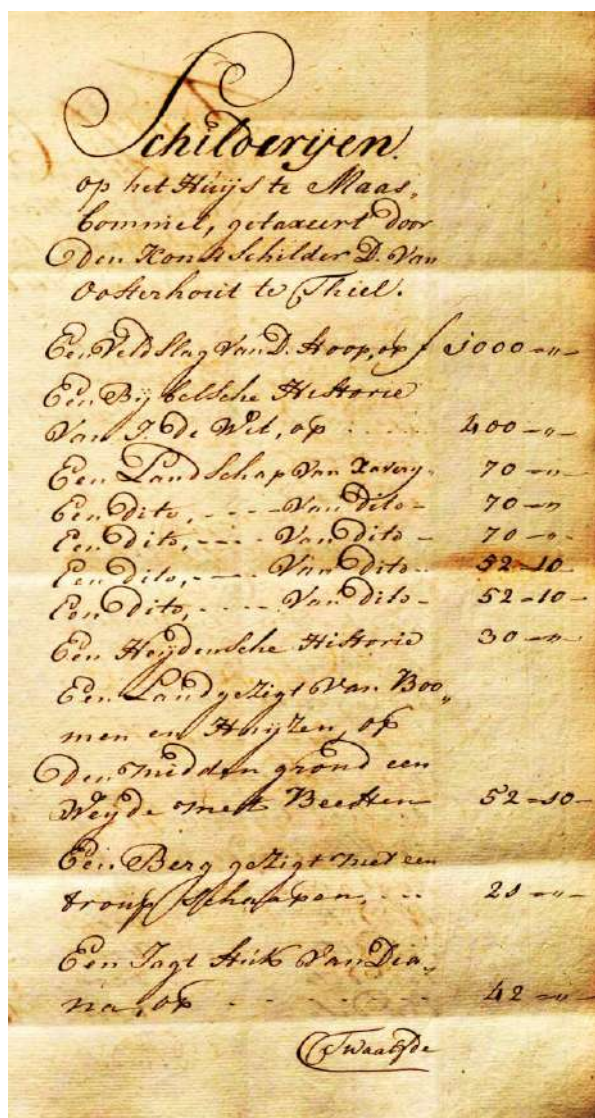 Schilderijen.
op het Huijs te Maas„
bommel, getaxeert door
Den Konstschilder D. Van
Oosterhout te Thiel.
Een Veld Slag Van D. Hoop, op f 1000-„-
Een Bijbelsche Historie
Van J. De Wit, op - - - - 400-„-
Een Landschap Van Xavery- 70-„-
Een Dito, - - - - Van Dito- 70-„
Een Dito, - - - - Van Dito- 70-„-
Een Dito, - - - Van Dito- 52-10-
Een Dito, - - - - Van Dito- 52-10-
Een Heydensche Historie 30-„-
Een Landgezigt Van Boo„
men en Huijzen, op
Den midden grond een
Weyde mett Beesten 52-10-
Een Berg gezigt met een
troup Schaapen, - - 21-„-
Een Jagt Stuk Van Dia„
na, op - - - - - - 42-„-